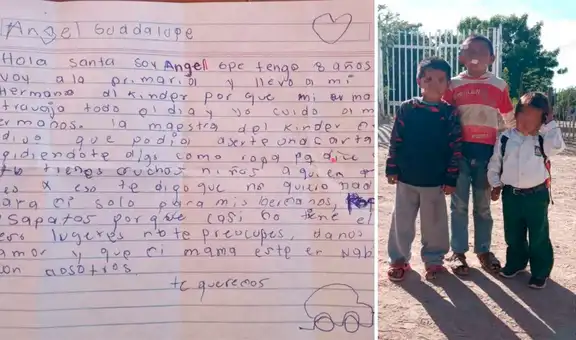 Angel Guadalupe
Hola santa soy Angel ope tengo 8 años
voy a la primaria y llevo a mi
Hermano al kinder por que mi ma
travaja todo el dia y yo cuido a m
ermanos. la maestra del kinder
dijo que podia aserte una carta
pidiendote algo como ropa
tienes muchos niños a quien
x eso te digo que no quiero nad
para mi solo para mis hermanos,
sapatos por que casi no tiene el
lugeres no te preocupes, danos
amor y que mi mama este en nab
con nosotros
te queremos